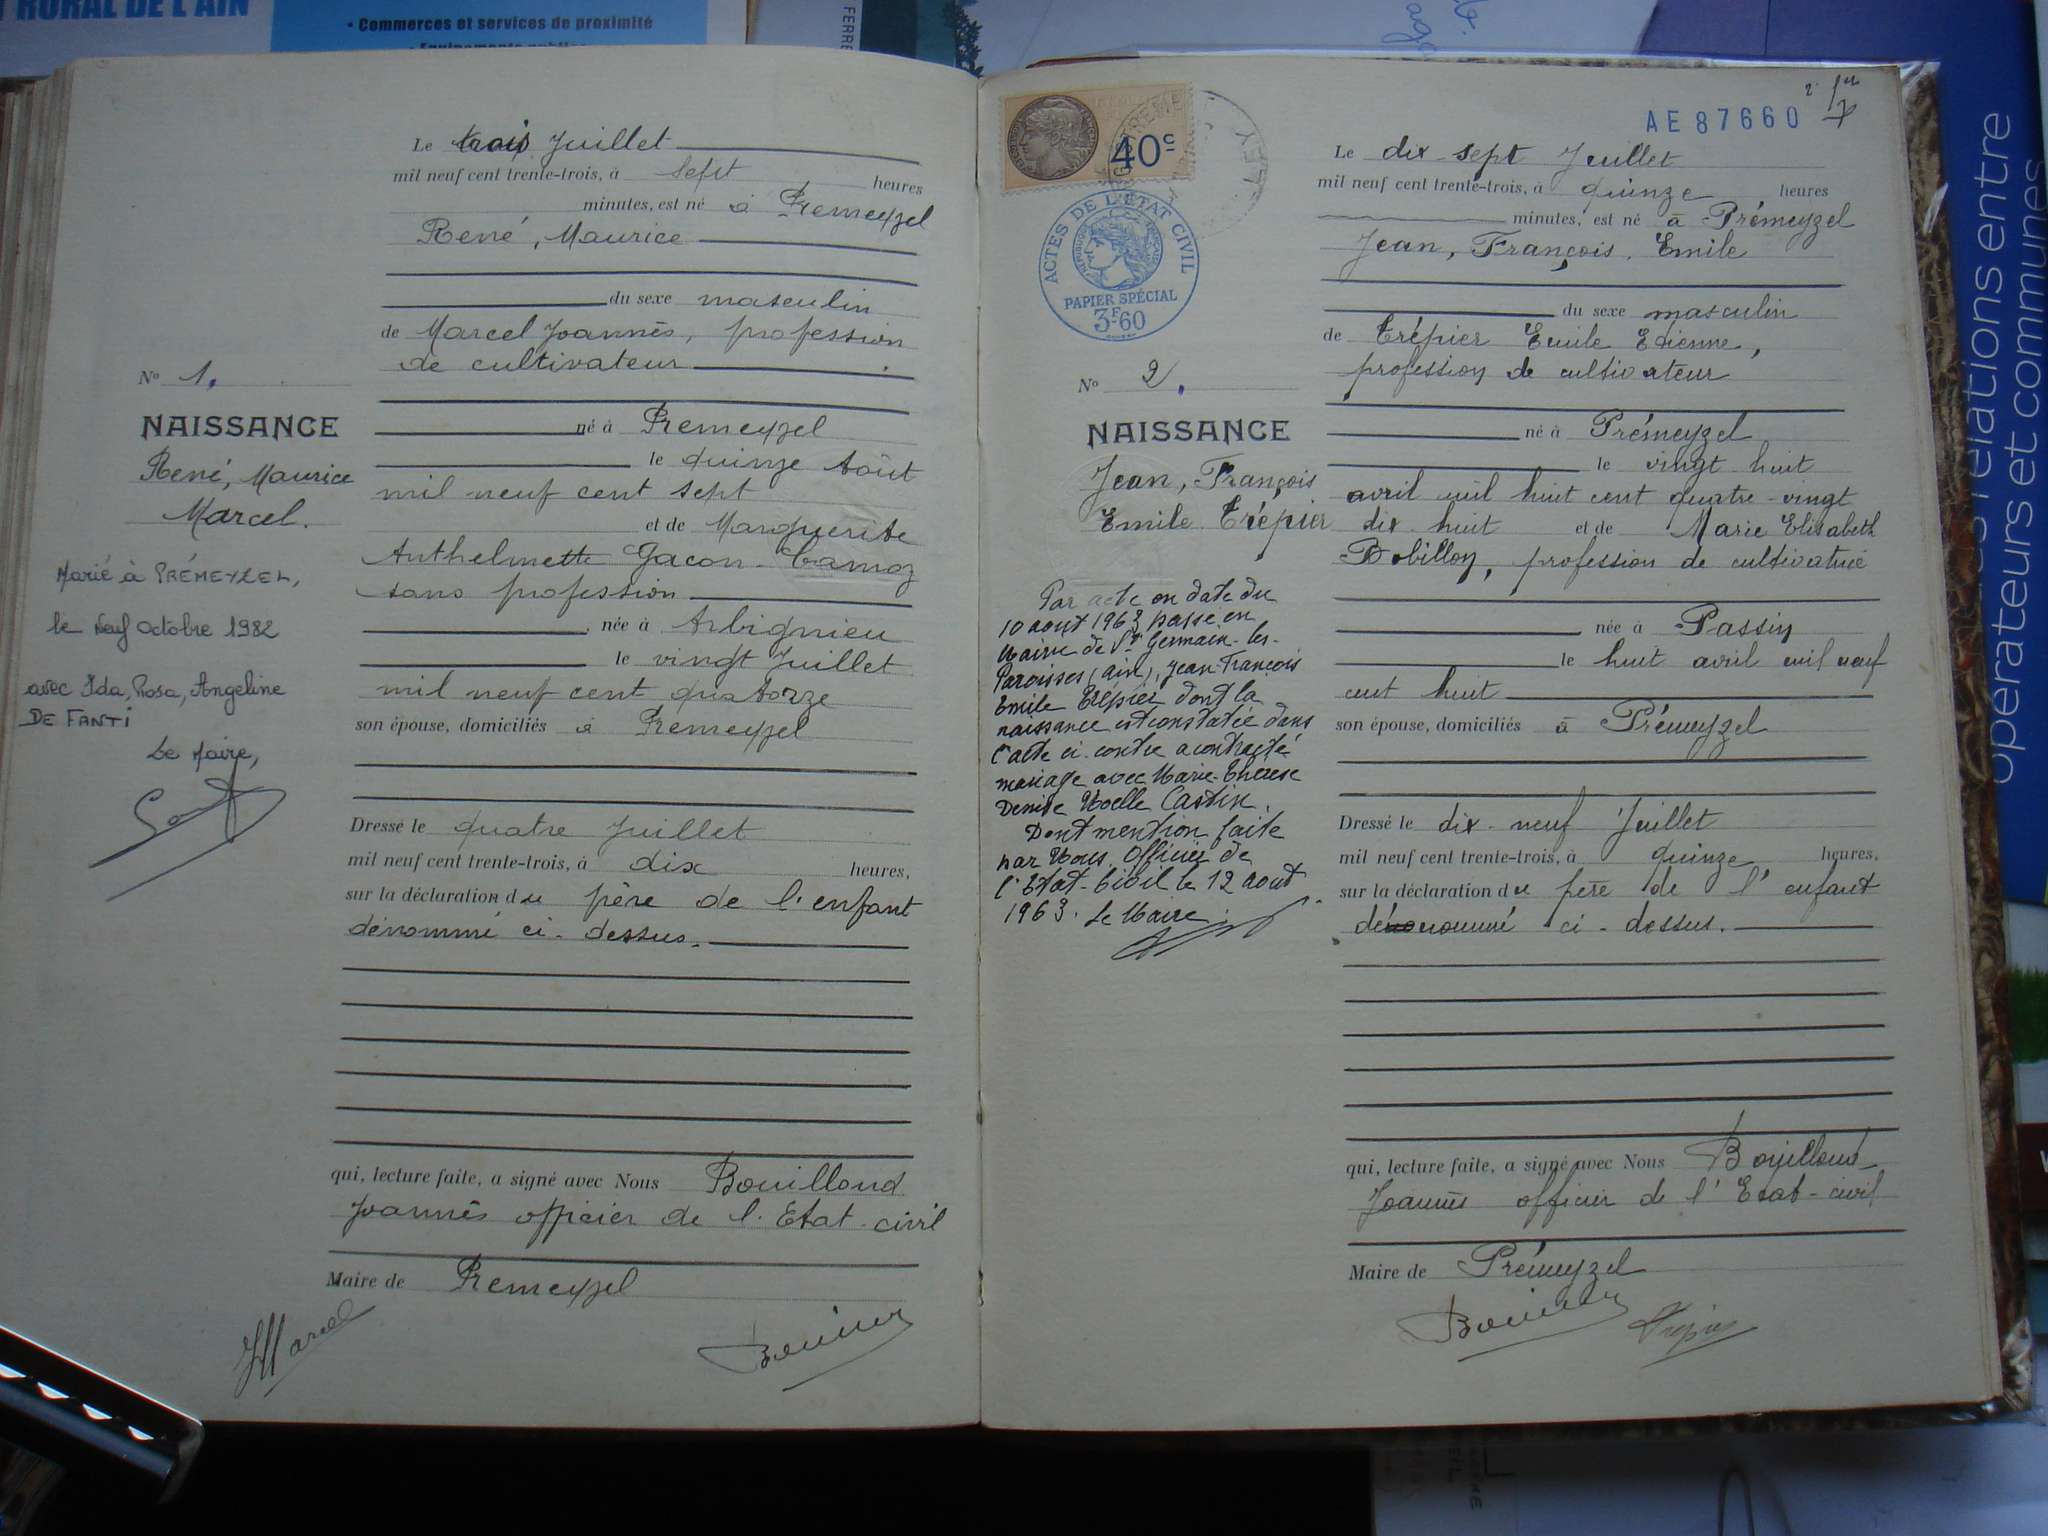 RURAL DE L'AIN
• Commerces et services de proximité
FERRE
N° 1.
NAISSANCE
René, Maurice
Marcel.
Marié à PRÉMEYZEL,
le Neuf Octobre 1982
avec Ida, Rosa, Angeline
DE FANTI
Le Maire,
Le trois Juillet
mil neuf cent trente-trois, à sept heures
minutes, est né à Premeyzel
René, Maurice
du sexe masculin
de Marcel Joannès, profession
de cultivateur
né à Premeyzel
le quinze Août
mil neuf cent sept
et de Marguerite
Anthelmette Gacon-Camoz
sans profession
née à Arbignieu
le vingt Juillet
mil neuf cent quatorze
son épouse, domiciliés à Premeyzel
Dressé le quatre Juillet
mil neuf cent trente-trois, à dix heures,
sur la déclaration du père de l'enfant
dénommé ci-dessus.
qui, lecture faite, a signé avec Nous Bouilloud
Joannès officier de l'Etat-civil
Maire de Premeyzel
JMarcel
40c
ACTES DE L'ÉTAT CIVIL
PAPIER SPÉCIAL
3F60
AE 87660
N° 2.
NAISSANCE
Jean, François
Emile Trépier
Par acte en date du
10 aout 1963 passé en
Mairie de St Germain-les-
Paroisses (ain), Jean-François
Emile Trépier dont la
naissance est constatée dans
l'acte ci-contre a contracté
mariage avec Marie-Thérèse
Denise Noelle Castin.
Dont mention faite
par Nous Officier de
l'Etat-Civil le 12 aout
1963. Le Maire :
Le dix-sept Juillet
mil neuf cent trente-trois, à quinze heures
minutes, est né à Prémeyzel
Jean, François, Emile
du sexe masculin
de Trépier Emile Etienne,
profession de cultivateur
né à Prémeyzel
le vingt huit
avril mil huit cent quatre-vingt
dix-huit et de Marie Elisabeth
Bobillon, profession de cultivatrice
née à Passin
le huit avril mil neuf
cent huit
son épouse, domiciliés à Prémeyzel
Dressé le dix-neuf Juillet
mil neuf cent trente-trois, à quinze heures,
sur la déclaration du père de l'enfant
dénommé ci-dessus.
qui, lecture faite, a signé avec Nous Bouilloud
Joannès officier de l'Etat-civil
Maire de Prémeyzel
Trépier
relations entre
operateurs et communes